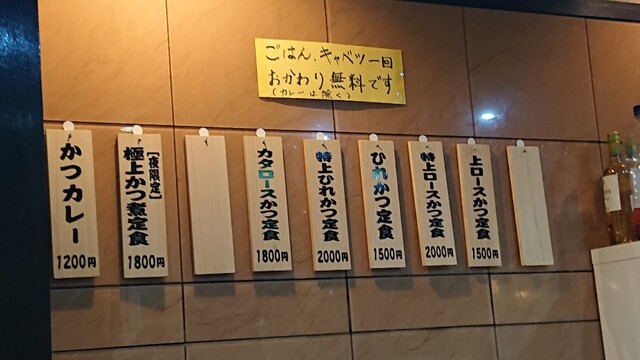 ごはん、キャベツ一回
おかわり無料です
(カレーは除く)
上ロースかつ定食
1500円
特上ロースかつ定食
2000円
ひれかつ定食
1500円
特上ひれかつ定食
2000円
カタロースかつ定食
1800円
[夜限定]
極上かつ煮定食
1800円
かつカレー
1200円